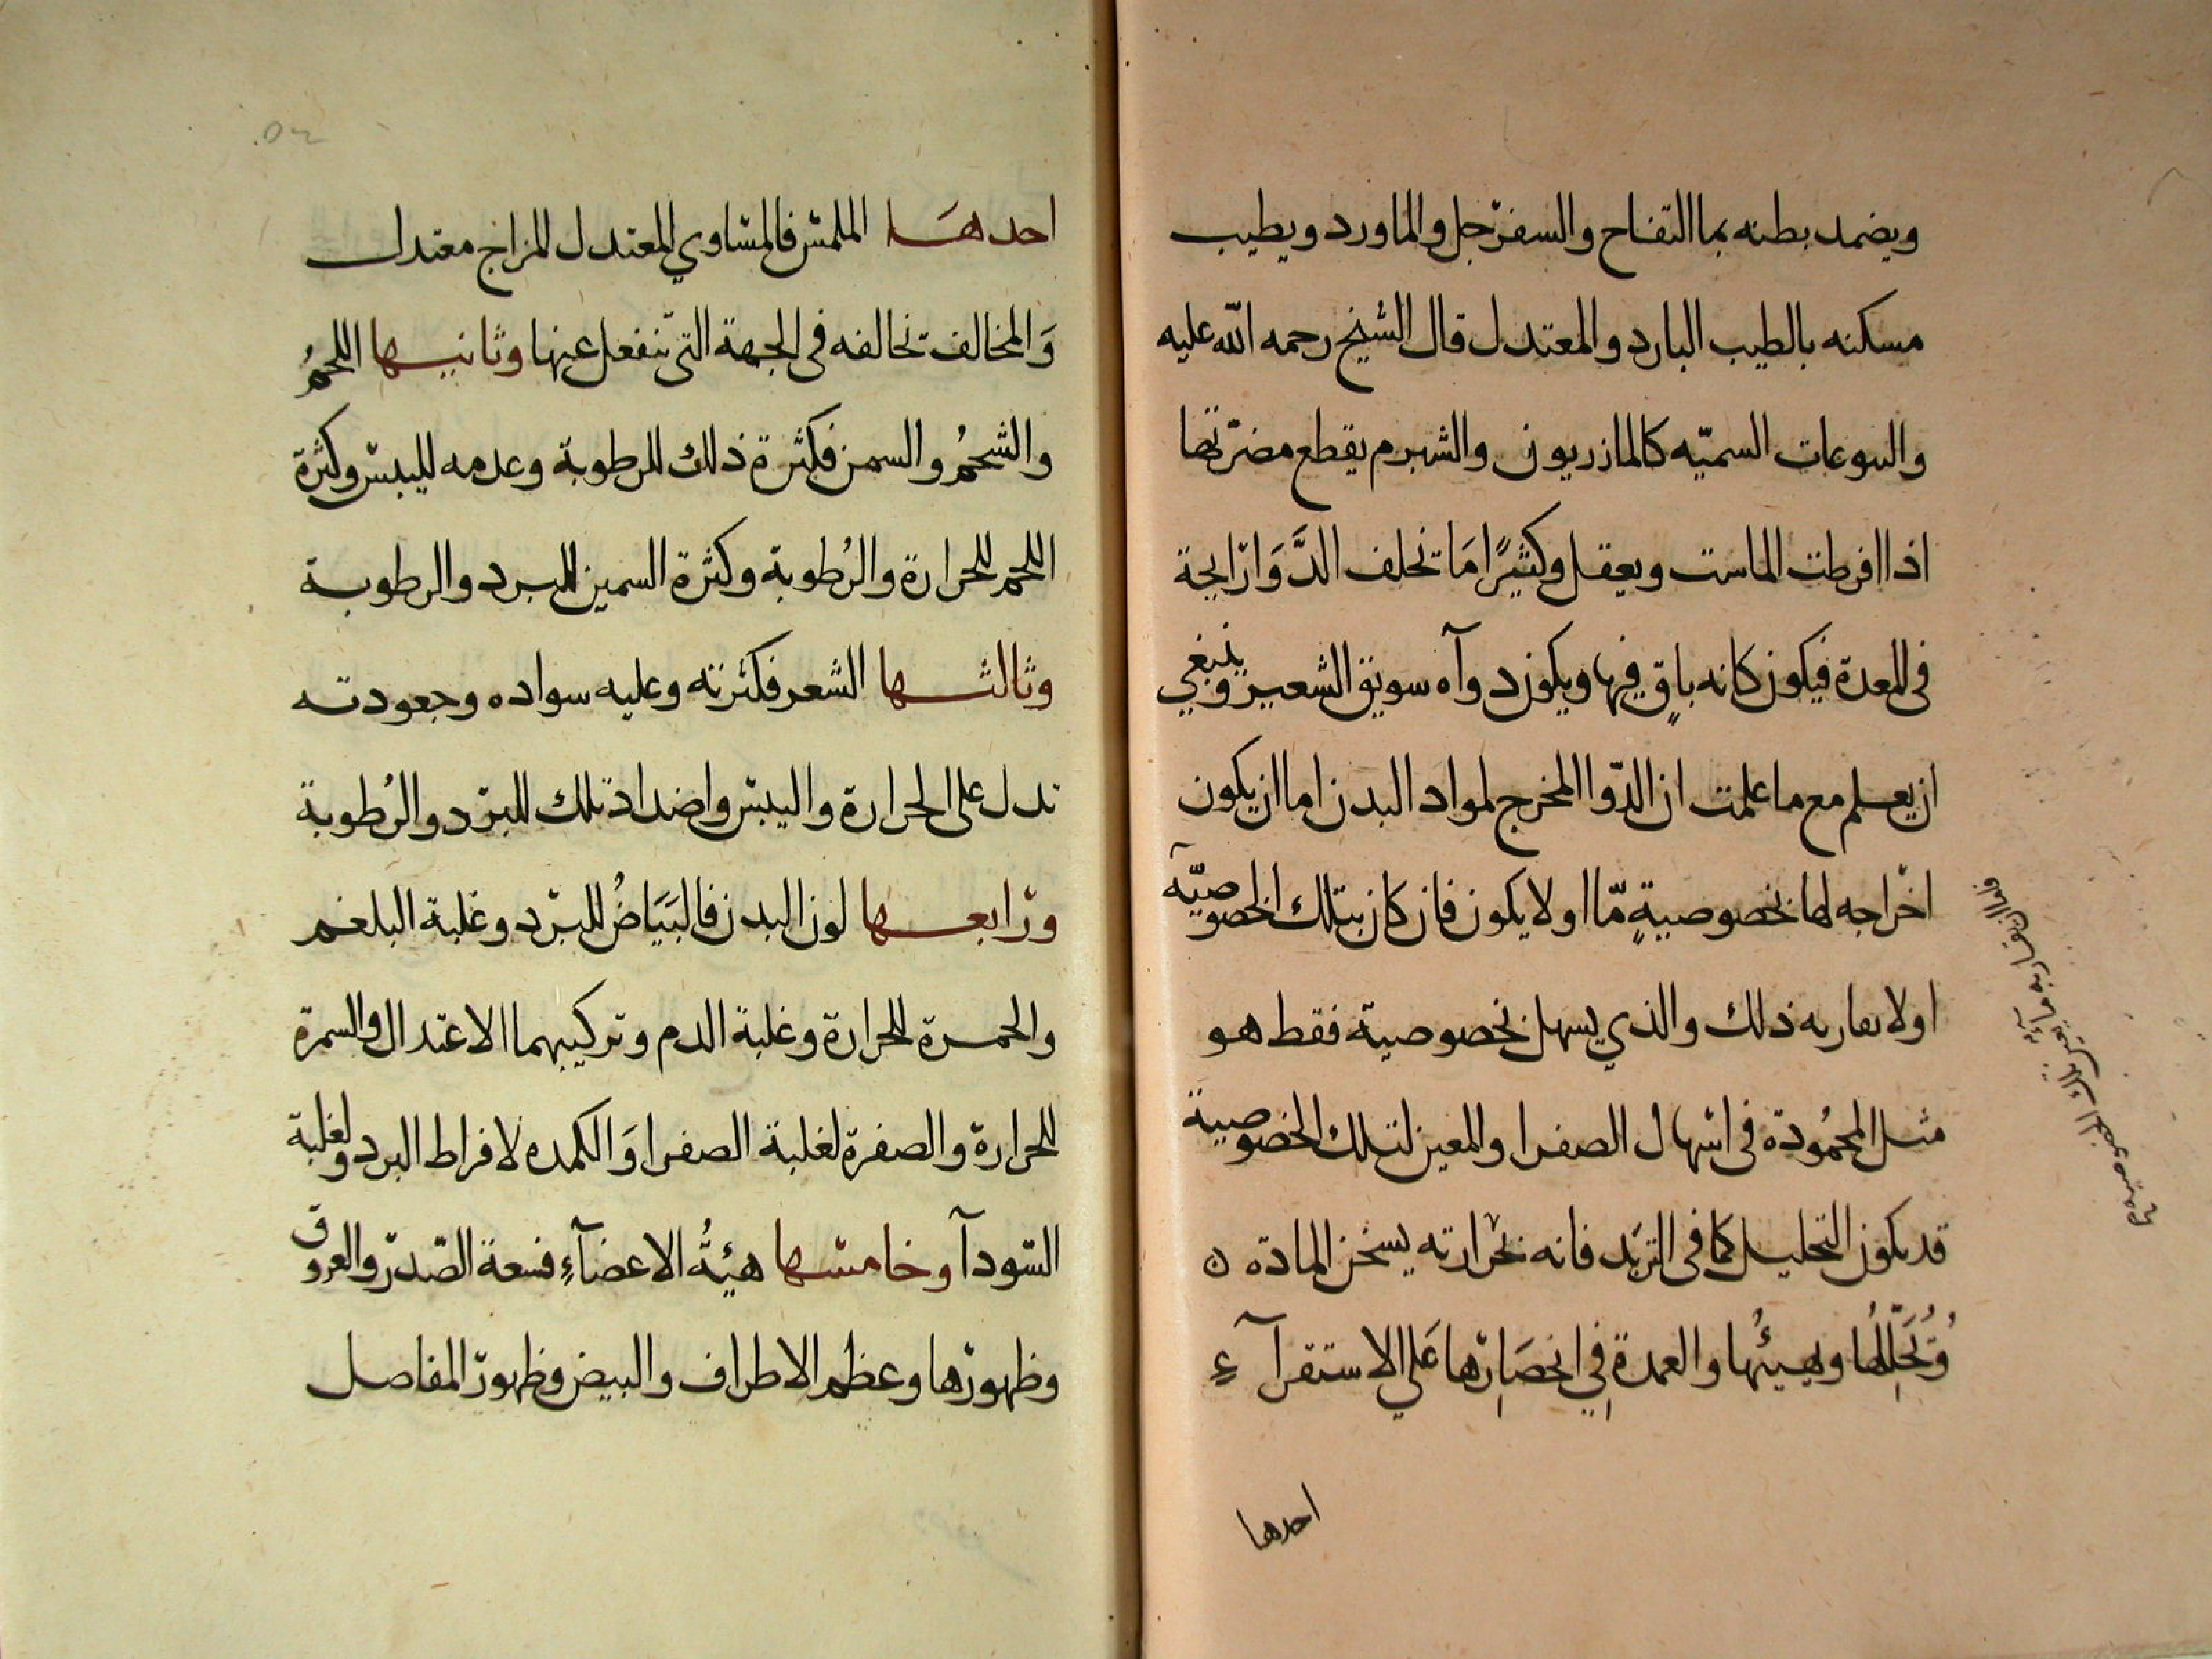 ويضمد بطنه بما التفاح والسفرجل والماورد ويطيب
مسكنه بالطيب البارد والمعتدل قال الشيخ رحمه الله عليه
واليتوعات السميّه كالماذريون والشبرم يقطع مضرّتها
اذا افرطت الماست ويعقل وكثيرًا مَا تخلف الدَّوَا رايحة
فى المعدة فيكون كانه باقٍ فيها ويكون دوآه سويق الشعير وينبغي
ان يعلم مع ما علمت ان الدّوا المخرج لمواد البدن اما ان يكون
اخراجه لها بخصوصيةٍ مّا او لا يكون فان كان بتلك الخصوصيّة
اولا يقاربه ذلك والذي يسهل بخصوصية فقط هو
مثل المحمُودة فى اسهال الصفرا والمعين لتلك الخصوصية
قد يكون التحليل كما فى التربَد فانه بحرارته يسخن المادة ن
وُتحَلِّلُها وهيئُها والعمدة فِي انحصَارِها عَلى الاستقرآءِ
احدها
فاما ان يقاربه ما يعين تلك الخصوصية صح
احدهَا الملمس فالمساوي المعتدل المزاج معتدل
وَالمخالف تخالفه فى الجهة التى ينفعل عنها وثانيها اللحمُ
والشحمُ والسمن فكثرة ذلك للرطوبة وعدمه لليبس وكثرة
اللحم للحرارة والرُطوبة وكثرة السمين للبرد والرطوبة
وثالثها الشعر فكثرته وعليه سواده وجعودته
تدل على الحرارة واليبس واضداد تلك للبرد والرُطوبة
ورابعها لون البدن فالبَيَاضُ للبرد وغلبة البلغم
والحمرة للحرارة وغلبة الدم وتركيبهما الاعتدال والسمرة
للحرارة والصفرة لغلبة الصفرا وَالكمده لافراط البرد ولغلبة
السّودآ وخامسها هيئةُ الاعضآءِ فسعة الصّدر والعروق
وظهورها وعظم الاطراف والبيض وظهور المفاصل